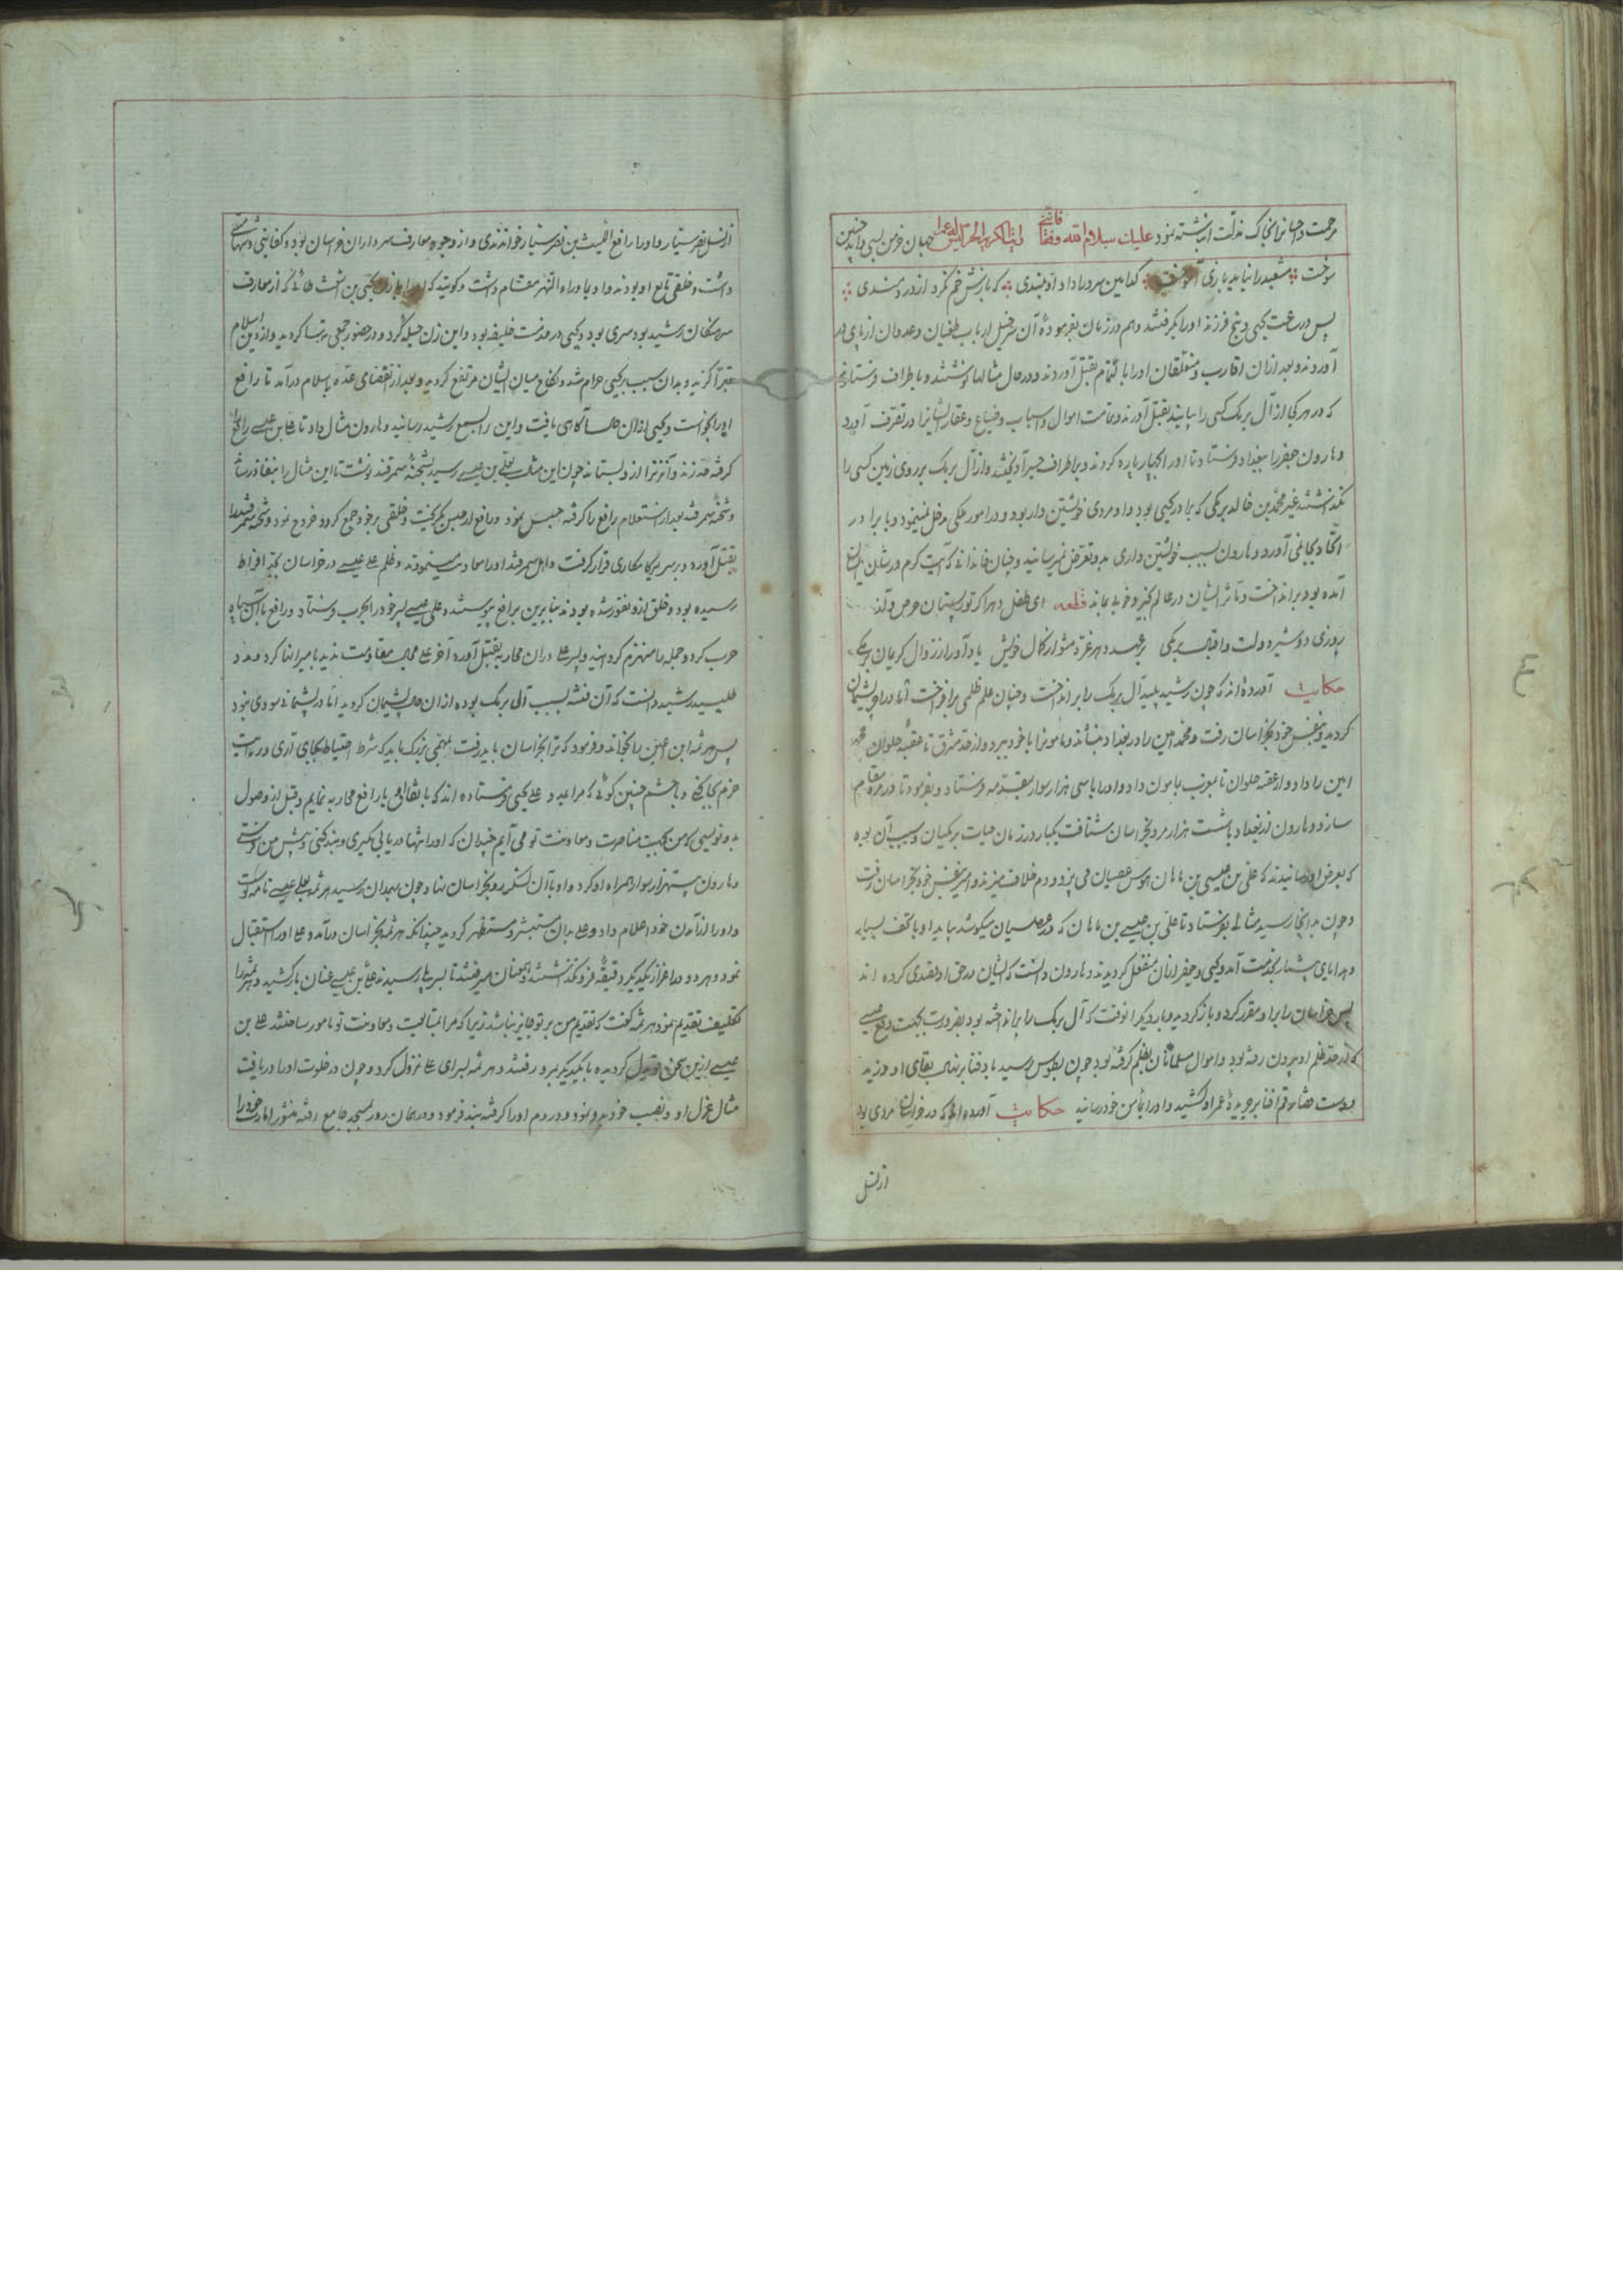 مرحمت و احیا نرا بخاک مذلت انباشته نمود علیک سلام الله وقفا فانی جهان خرمن بسی داند چنین
سوخت مشعبد را نباید بازی آموخت کدامین سرو را داد او بلندی که بازش خم نکرد از دردمندی
پس در ساعت یحیی و پنج فرزند او را بگرفتند و هم در زمان بفرموده آن سرخیل ارباب طغیان و عدوان از پای در
آوردند و بعد از ان اقارب و متعلقان او را با تمام بقتل آوردند و در حال مثالها نوشتند و باطراف فرستادند
که در هر کجا از آل برمک کسی را بیابند بقتل آورند و تمامت اموال و اسباب و ضیاع و عقار ایشانرا در تصرف آورد
و هارون جعفر را ببغداد فرستاد تا او را بچهار پاره کردند و بر اطراف جسر آویختند و از آل برمک بر روی زمین کسی را
نگذاشتند غیر محمد بن خالد برمکی که برادر یحیی بود و او مردی خویشتن دار بود و در امور ملکی مدخل نمینمود و با برادر
اتحاد بجا نمی آورد و هارون بسبب خویشتن داری بدو تعرض نمیرسانید و چنان خاندانی که آیت کرم در شان ایشان
آمده بود بر انداخت و مآثر ایشان در عالم بخیر و خوبی بماند قطعه ای طفل دهر اگر تو ز پستان حرص و آز
روزی دو شیر دولت و اقبال برمکی در عهد دهر غره مشو از کمال خویش یاد آور از زوال کریمان برمکی
حکایت آورده اند که چون رشید پلید آل برمک را بر انداخت و چنان علم ظلمی بر افراخت اما در آخر پشیمان
گردید و بنفس خود بخراسان رفت و محمد امین را در بغداد بنشاند و مامونرا با خود ببرد و از حد مشرق تا عقبه حلوان محمد
امین را داد و از عقبه حلوان تا مغرب بمامون داد و او را با سی هزار سوار بمقدمه فرستاد و بفرمود تا در مرو مقام
سازد و هارون از بغداد با شست هزار مرد بخراسان شتافت یکبار در زمان حیات برمکیان و سبب آن بود
که بعرض او رسانیدند که علی بن عیسی بن ماهان هوس عصیان می پزد و دم خلاف میزند و امیر بنفس خود بخراسان رفت
و چون بد انجا رسید مثالی بفرستاد تا علی بن عیسی بن ماهان که در عصیان میکوشد بیاید او با تحف بسیار
و هدایای بیشمار بخدمت آمد و یحیی و جعفر ازان منفعل گردیدند و هارون دانست که ایشان در حق او قصدی کرده اند
پس خراسان را برو مقرر کرد و باز گردید و بار دیگر انوقت که آل برمک را بر انداخته بود بضرورت بجهت دفع عیسی
که از حد ظلم او بیرون رفته بود و اموال مسلمانان بظلم گرفته بود چون بطوس رسید باد فنا بر نهال بقای او وزید
و دست قضا رقم افنا بر جریدهٔ عمر او کشید و او را بمأمن خود رسانید حکایت آورده اند که در خراسان مردی بود
از نسل
از نسل نصر سیار و او را رافع اللیث بن نصر سیار خواندندی و از وجوه معارف سرداران خراسان بود و کفایتی و شهامتی
داشت و خلقی تابع او بودند و او بما وراء النهر مقام داشت و گویند که یحیی بن اشعث طائی که از معارف
سرهنگان رشید بود سری بود و یحیی در خدمت خلیفه بود و این زن حیله کرد و در حضور جمعی ترسا گردید و از دین اسلام
تبرا گزید و بدان سبب بر یحیی حرام شد و نکاح میان ایشان مرتفع گردید و بعد از انقضای عده باسلام درآمد تا رافع
او را بخواست و یحیی ازان حال آگاهی یافت و این را بسمع رشید رسانید و هارون مثال داد تا علی بن عیسی رافع را
گرفته حد زند و آنزنرا ازو بستاند چون این مثال بعلی بن عیسی رسید بشحنهٔ سمرقند نوشت تا این مثال را بنفاذ رساند
و شحنهٔ سمرقند بعد از استعلام رافع را گرفته حبس نمود و رافع از حبس بگریخت و خلقی بر خود جمع کرد و خروج نمود و شحنه سمرقند را
بقتل آورد و بر سریر کامکاری قرار گرفت و اهل سمرقند او را معاونت مینمودند و ظلم علی عیسی در خراسان بحد افراط
رسیده بود و خلق ازو نفور شده بودند بنابرین برافع پیوستند و علی عیسی پسر خود را بحرب فرستاد و رافع با آن سپاه
حرب کرد و جمله را منهزم گردانید و پسر علی دران محاربه بقتل آورده آخر علی مجال مقاومت ندید با میر انها کرد و مدد
طلبید رشید دانست که آن فتنه بسبب آل برمک بوده از ان حال پشیمان گردید اما در پشیمانی سودی نبود
پس هرثمه ابن اعین را بخواند و فرمود که ترا بخراسان باید رفت بمهمی بزرگ باید که شرط احتیاط بجای آری و رعایت
حزم بجا کنی و با حشم چنین گوئی که مرا بمدد علی یحیی فرستاده اند که باتفاق او با رافع محاربه نمایم و قبل از وصول
بدو نویسی که من بجهت مناصرت و معاونت تو می آیم چندان که او را تنها دریابی بگیری و بند کنی و پیش من فرستی
و هارون بیستهزار سوار همراه او کرد و او با آن لشکر رو بخراسان نهاد چون بهمدان رسید هرثمه بعلی عیسی نامه نوشت
و او را از آمدن خود اعلام داد و علی بدان مستبشر و مستظهر گردید چندانکه هرثمه بخراسان درآمد و علی او را استقبال
نمود و هر دو در اعزاز یکدیگر دقیقهٔ فرو نگذاشتند و همعنان میرفتند تا بسر پل رسیدند علی بن عیسی عنان باز کشید و هرثمه را
تکلیف تقدیم نمود هرثمه گفت که تقدیم من بر تو جایز نباشد زیرا که مرا بمتابعت و معاونت تو مامور ساختند علی بن
عیسی ازین سخن قویدل گردیده با یکدیگر بمرو رفتند و هرثمه بسرای علی نزول کرد و چون در خلوت او را دریافت
مثال عزل او و نصب خود بدو نمود و در دم او را گرفته بند فرمود و در همان روز بمسجد جامع رفته منشور امارت خود را